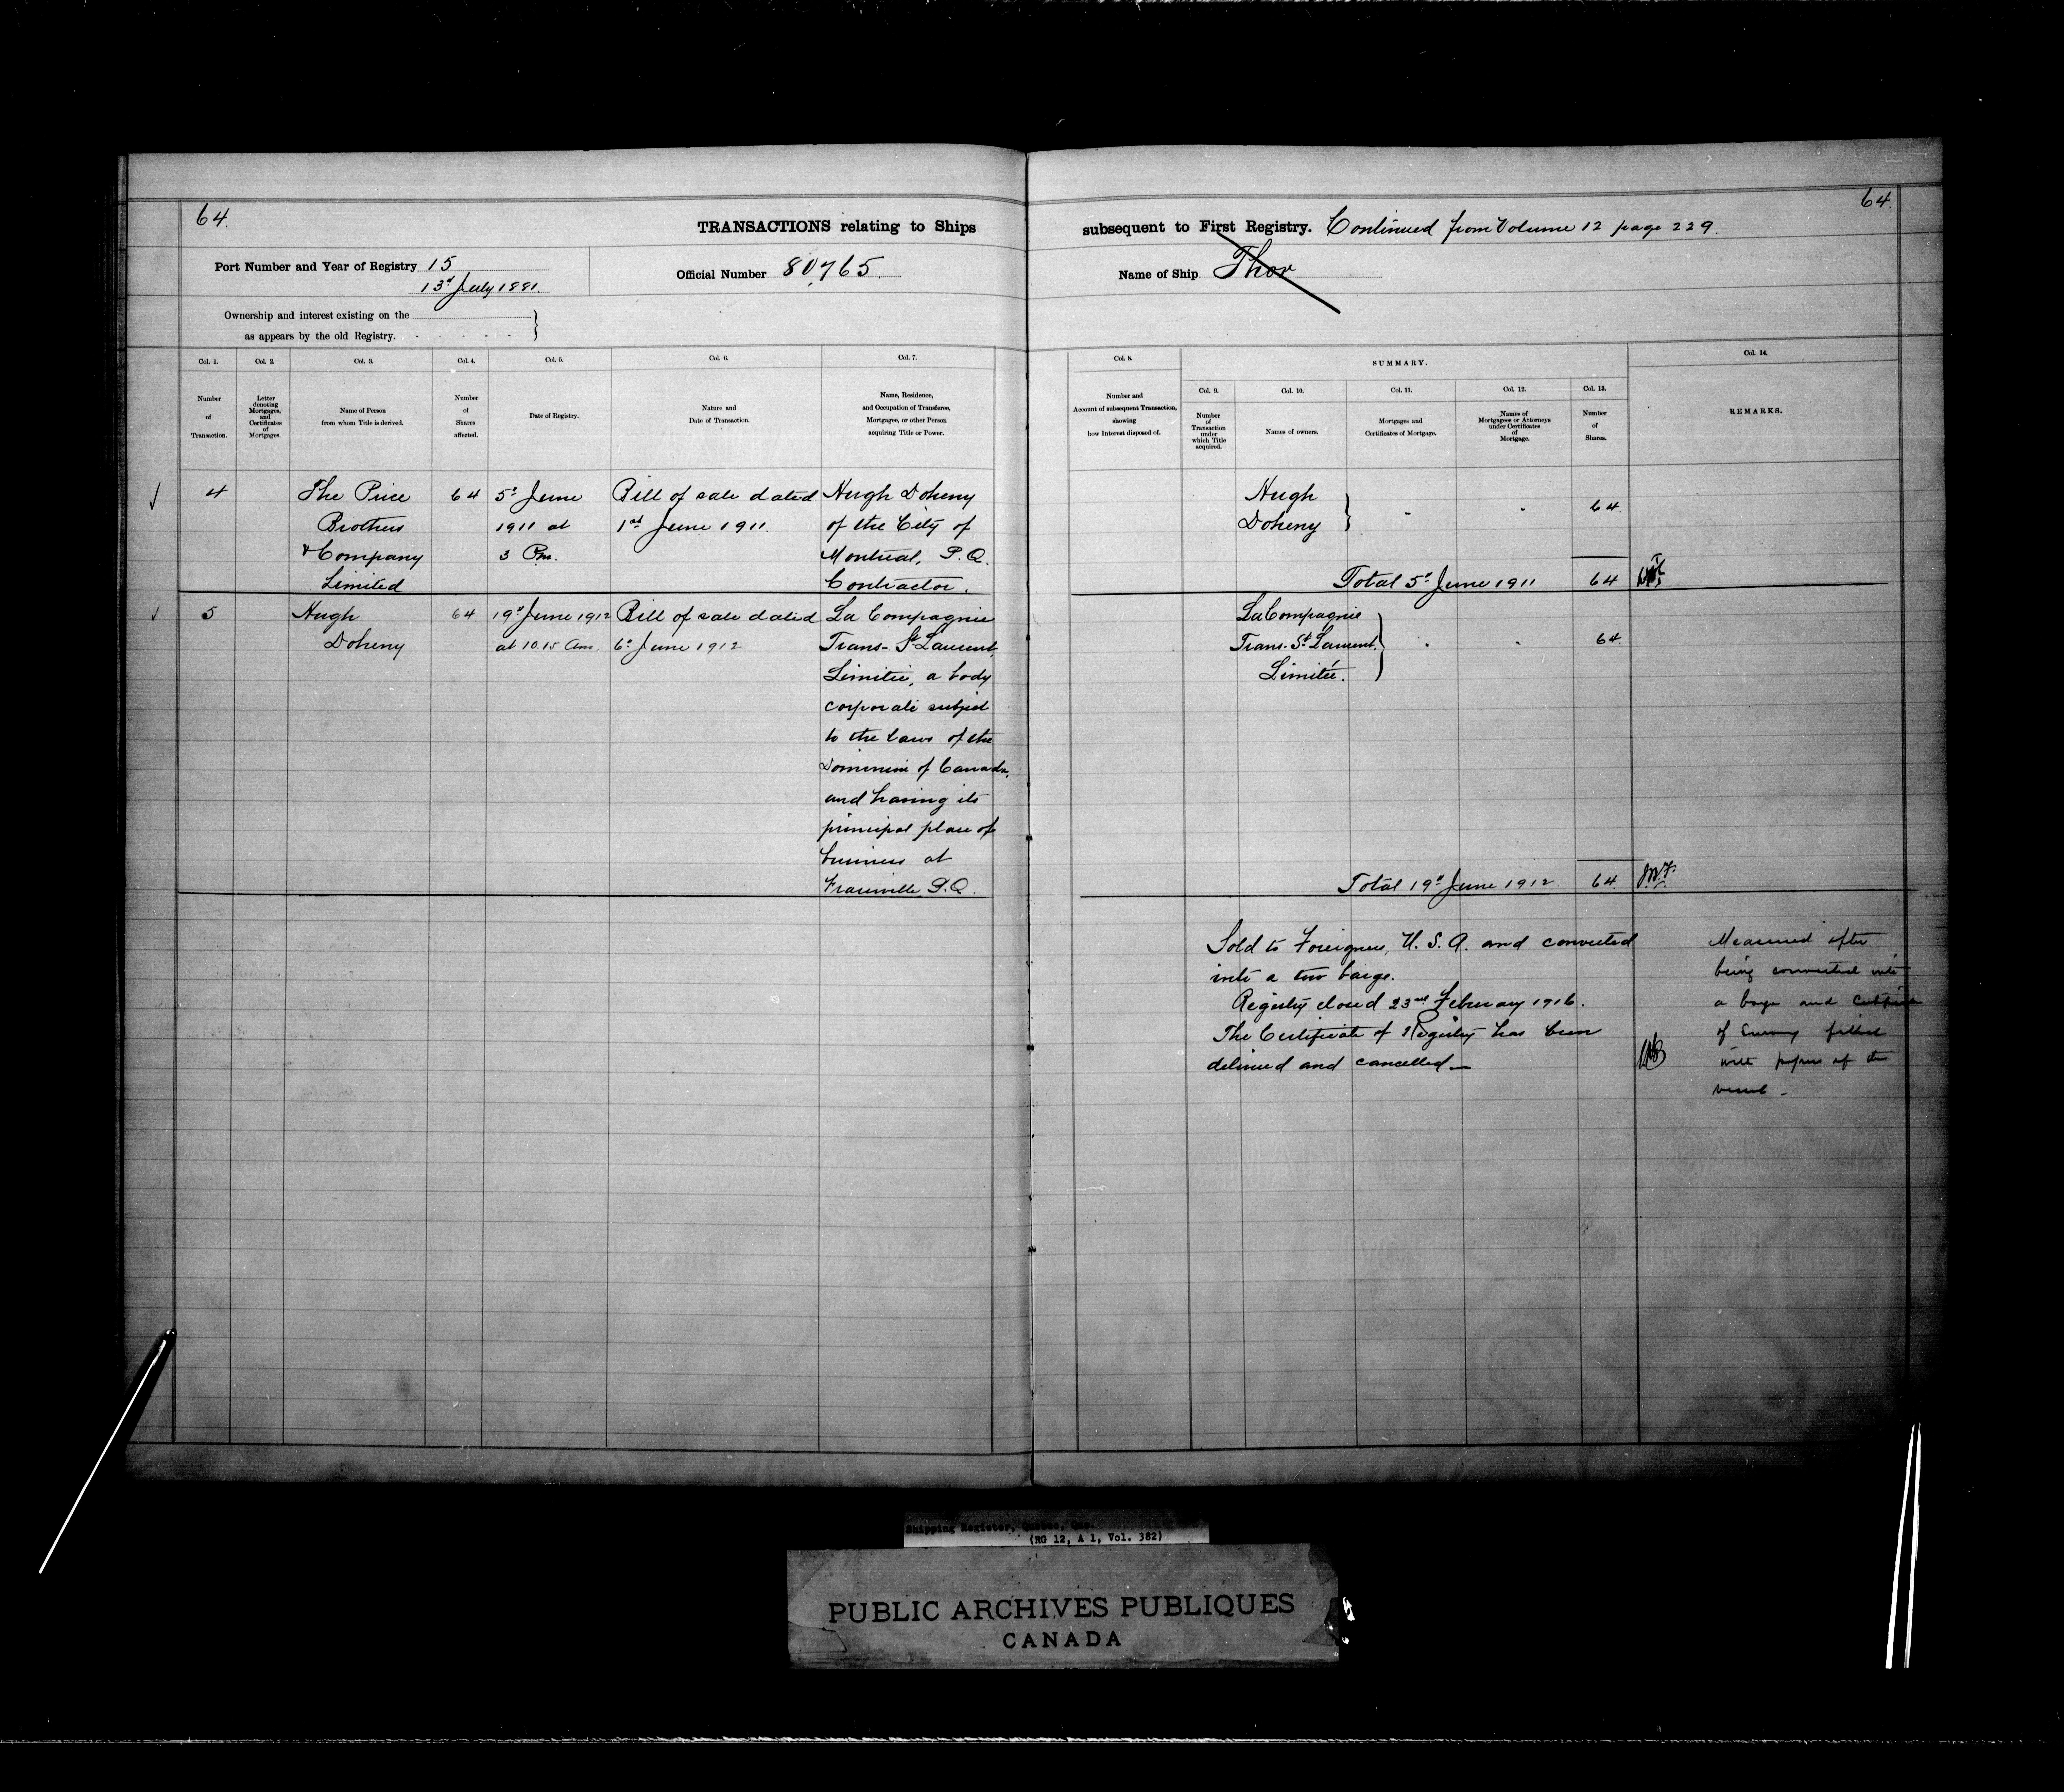 64.
64.
TRANSACTIONS relating to Ships
subsequent to First Registry. Continued from Volume 12 page 229.
Port Number and Year of Registry 15
13" July 1881.
Official Number 80,765.
Name of Ship Thor
Ownership and interest existing on the
as appears by the old Registry.
Col. 1.
Number
of
Transaction.
Col. 2.
Letter
denoting
Mortgages,
and
Certificates
of
Mortgages.
Col. 3.
Name of Person
from whom Title is derived.
Col. 4.
Number
of
Shares
affected.
Col. 5.
Date of Registry.
Col. 6.
Nature and
Date of Transaction.
Col. 7.
Name, Residence,
and Occupation of Transferee,
Mortgagee, or other Person
acquiring Title or Power.
Col. 8.
Number and
Account of subsequent Transaction,
showing
how Interest disposed of.
SUMMARY.
Col. 9.
Number
of
Transaction
under
which Title
acquired.
Col. 10.
Names of owners.
Col. 11.
Mortgages and
Certificates of Mortgage.
Col. 12.
Names of
Mortgagees or Attorneys
under Certificates
of
Mortgage.
Col. 13.
Number
of
Shares.
Col. 14.
REMARKS.
4
The Price
Brothers
& Company
Limited
64
5" June
1911 at
3 Pm.
Bill of sale dated
1st June 1911.
Hugh Doheny
of the City of
Montreal, P.Q.
Contractor.
Hugh
Doheny
64.
Total 5" June 1911 64
5
Hugh
Doheny
64
19" June 1912
at 10.15 Am.
Bill of sale dated
6" June 1912
La Compagnie
Trans-St Laurent,
Limitée, a body
corporate subject
to the laws of the
Dominion of Canada,
and having its
principal place of
business at
Fraserville P.Q.
La Compagnie
Trans-St. Laurent
Limitée.
64.
Total 19" June 1912. 64
Sold to Foreigners, U.S.A. and converted
into a tow barge.
Registry closed 23rd February 1916.
The Certificate of Registry has been
delivered and cancelled_
Measured after
being converted into
a barge and
of Survey filed
with papers of the
vessel -
Shipping Register, Quebec, Que.
(RG 12, A 1, Vol. 382)
PUBLIC ARCHIVES PUBLIQUES
CANADA